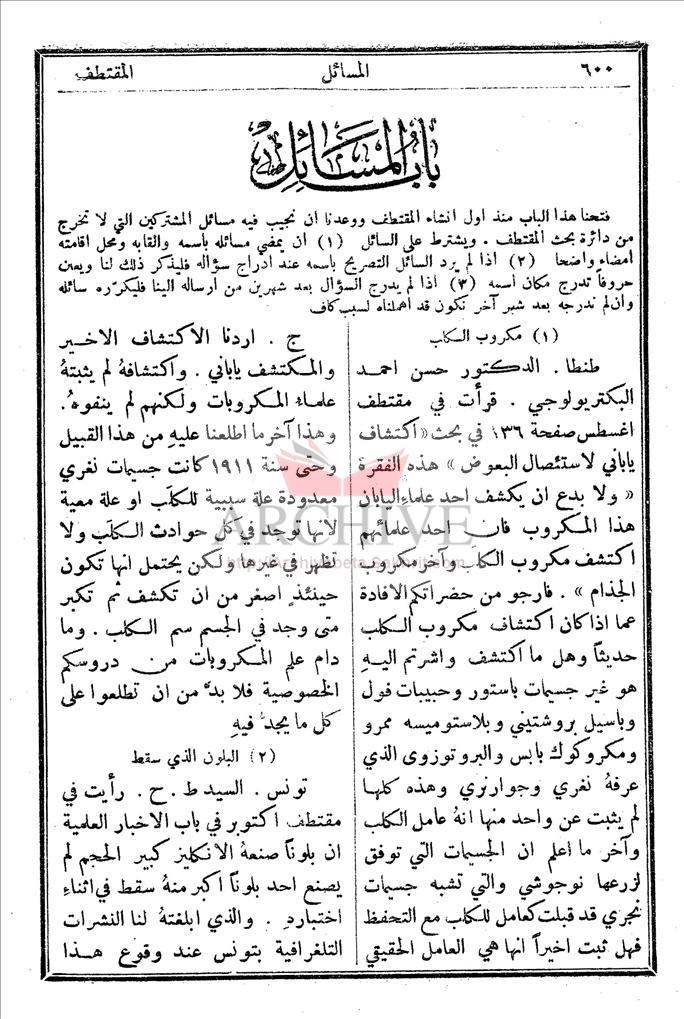 ٦٠٠ المسائل المقتطف
باب المسائل
فتحنا هذا الباب منذ اول انشاء المقتطف ووعدنا ان نجيب فيه مسائل المشتركين التي لا تخرج
من دائرة بحث المقتطف . ويشترط على السائل (١) ان يمضي مسائله باسمه والقابه ومحل اقامته
امضاء واضحاً (٢) اذا لم يرد السائل التصريح باسمه عند ادراج سؤاله فليذكر ذلك لنا ويعين
حروفاً تدرج مكان اسمه (٣) اذا لم يدرج السؤال بعد شهرين من ارساله الينا فليكرّره سائله
وان لم ندرجه بعد شهر آخر نكون قد اهملناه لسبب كاف
(١) مكروب الكلب
طنطا . الدكتور حسن احمد
البكتريولوجي . قرأت في مقتطف
اغسطس صفحة ١٣٦ في بحث «اكتشاف
ياباني لاستئصال البعوض» هذه الفقرة
« ولا بدع ان يكشف احد علماء اليابان
هذا المكروب فان احد علمائهم
اكتشف مكروب الكلب وآخر مكروب
الجذام » . فارجو من حضراتكم الافادة
عما اذا كان اكتشاف مكروب الكلب
حديثاً وهل ما اكتشف واشرتم اليهِ
هو غير جسيمات باستور وحبيبات فول
وباسيل بروشتيني وبلاستوميسه ممرو
ومكروكوك بابس والبروتوزوى الذي
عرفهُ نغري وجوارنري وهذه كلها
لم يثبت عن واحد منها انهُ عامل الكلب
وآخر ما اعلم ان الجسيمات التي توفق
لزرعها نوجوشي والتي تشبه جسيمات
نجري قد قبلت كعامل للكلب مع التحفظ
فهل ثبت اخيراً انها هي العامل الحقيقي
ج . اردنا الاكتشاف الاخير
والمكتشف ياباني . واكتشافهُ لم يثبتهُ
علماء المكروبات ولكنهم لم ينفوهُ .
وهذا آخر ما اطلعنا عليهِ من هذا القبيل
وحتى سنة ١٩١١ كانت جسيمات نغري
معدودة علة سببية للكلب او علة معية
لانها توجد في كل حوادث الكلب ولا
تظهر في غيرها ولكن يحتمل انها تكون
حينئذٍ اصغر من ان تكشف ثم تكبر
متى وجد في الجسم سم الكلب . وما
دام علم المكروبات من دروسكم
الخصوصية فلا بدَّ من ان تطلعوا على
كل ما يجدُّ فيهِ
(٢) البلون الذي سقط
تونس . السيد ط . ح . رأيت في
مقتطف اكتوبر في باب الاخبار العلمية
ان بلوناً صنعهُ الانكليز كبير الحجم لم
يصنع احد بلوناً اكبر منهُ سقط في اثناءِ
اختبارهِ . والذي ابلغتهُ لنا النشرات
التلغرافية بتونس عند وقوع هذا
ARCHIVE